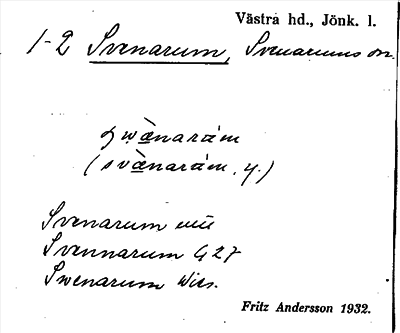 Västra hd., Jönk. l.
1-2 Svenarum, Svenarums sn.
zwæ̀naràm
(svæ̀naràm, y.)
Svenarum
Svennarum G 27
Swenarum Wies.
Fritz Andersson 1932.